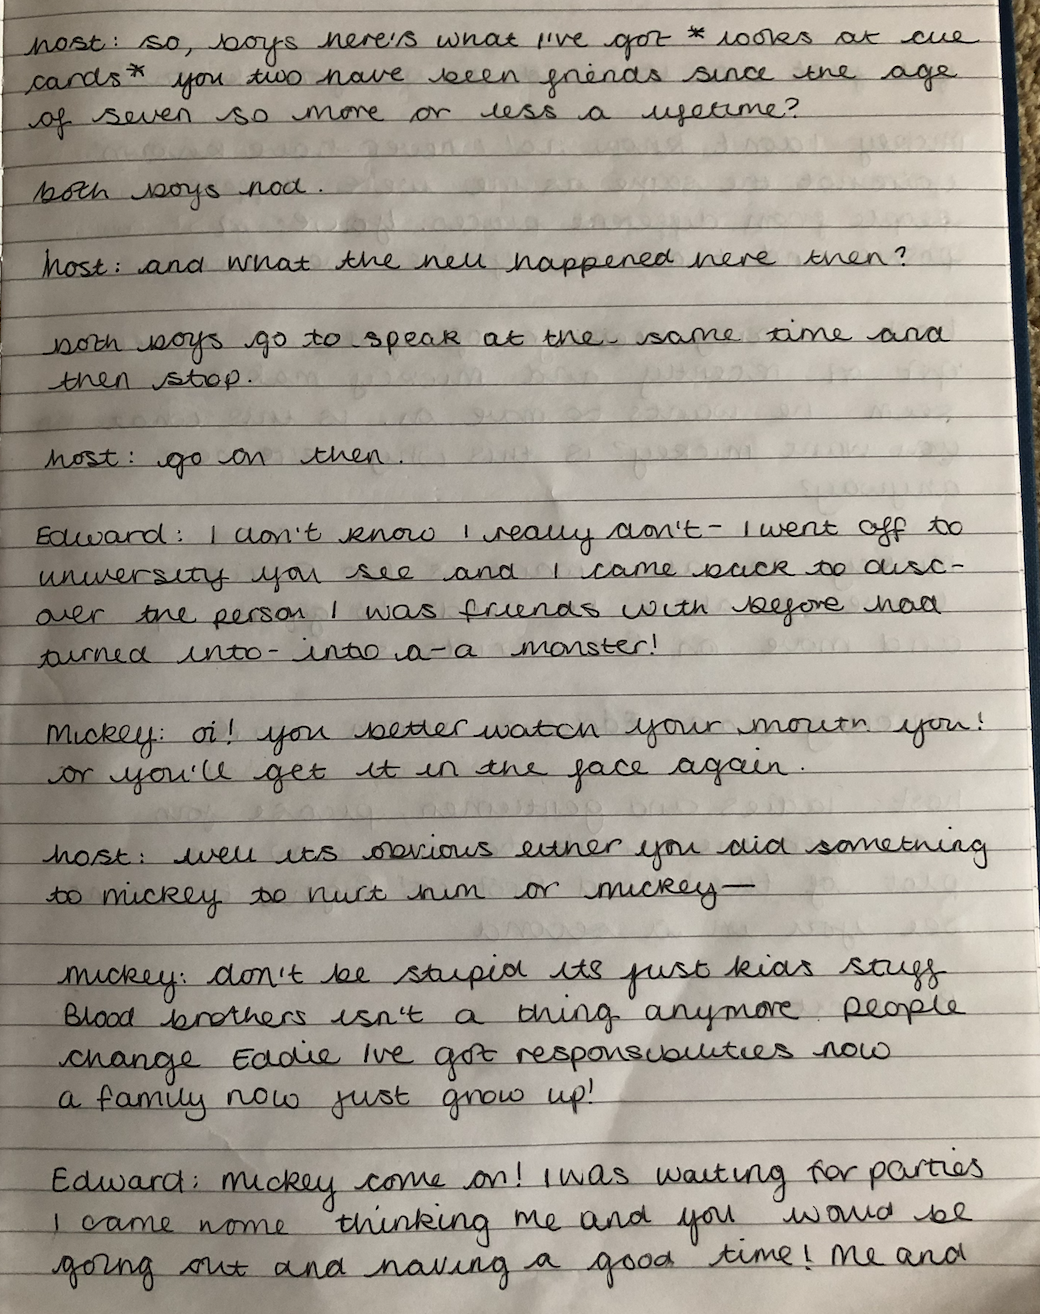 host: so, boys here's what I've got *looks at cue
cards* you two have been friends since the age
of seven so more or less a lifetime?
both boys nod.
host: and what the hell happened here then?
both boys go to speak at the same time and
then stop.
host: go on then.
Edward: I don't know I really don't- I went off to
university you see and I came back to disc-
over the person I was friends with before had
turned into- into a-a monster!
Mickey: oi! you better watch your mouth you!
or you'll get it in the face again.
host: well its obvious either you did something
to mickey to hurt him or mickey—
mickey: don't be stupid its just kids stuff
Blood brothers isn't a thing anymore people
change Eddie Ive got responsibilities now
a family now just grow up!
Edward: Mickey come on! I was waiting for parties
I came home thinking me and you would be
going out and having a good time! Me and